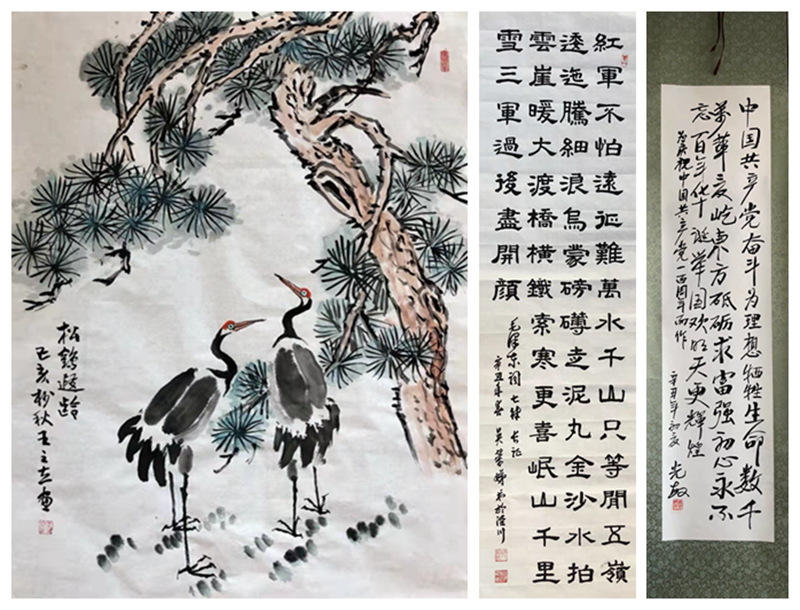 松鶴遐齡
己亥初秋
紅軍不怕遠征難萬水千山只等閒五嶺
逶迤騰細浪烏蒙磅礴走泥丸金沙水拍
雲崖暖大渡橋橫鐵索寒更喜岷山千里
雪三軍過後盡開顏
毛澤东词七律长征
辛丑年春
中国共产党奋斗为理想牺牲生命数千
萬华夏屹东方砥砺求富强初心永不
忘百年华诞举国欢明天更輝煌
为庆祝中国共产党一百周年而作
辛丑年初夏 光敏